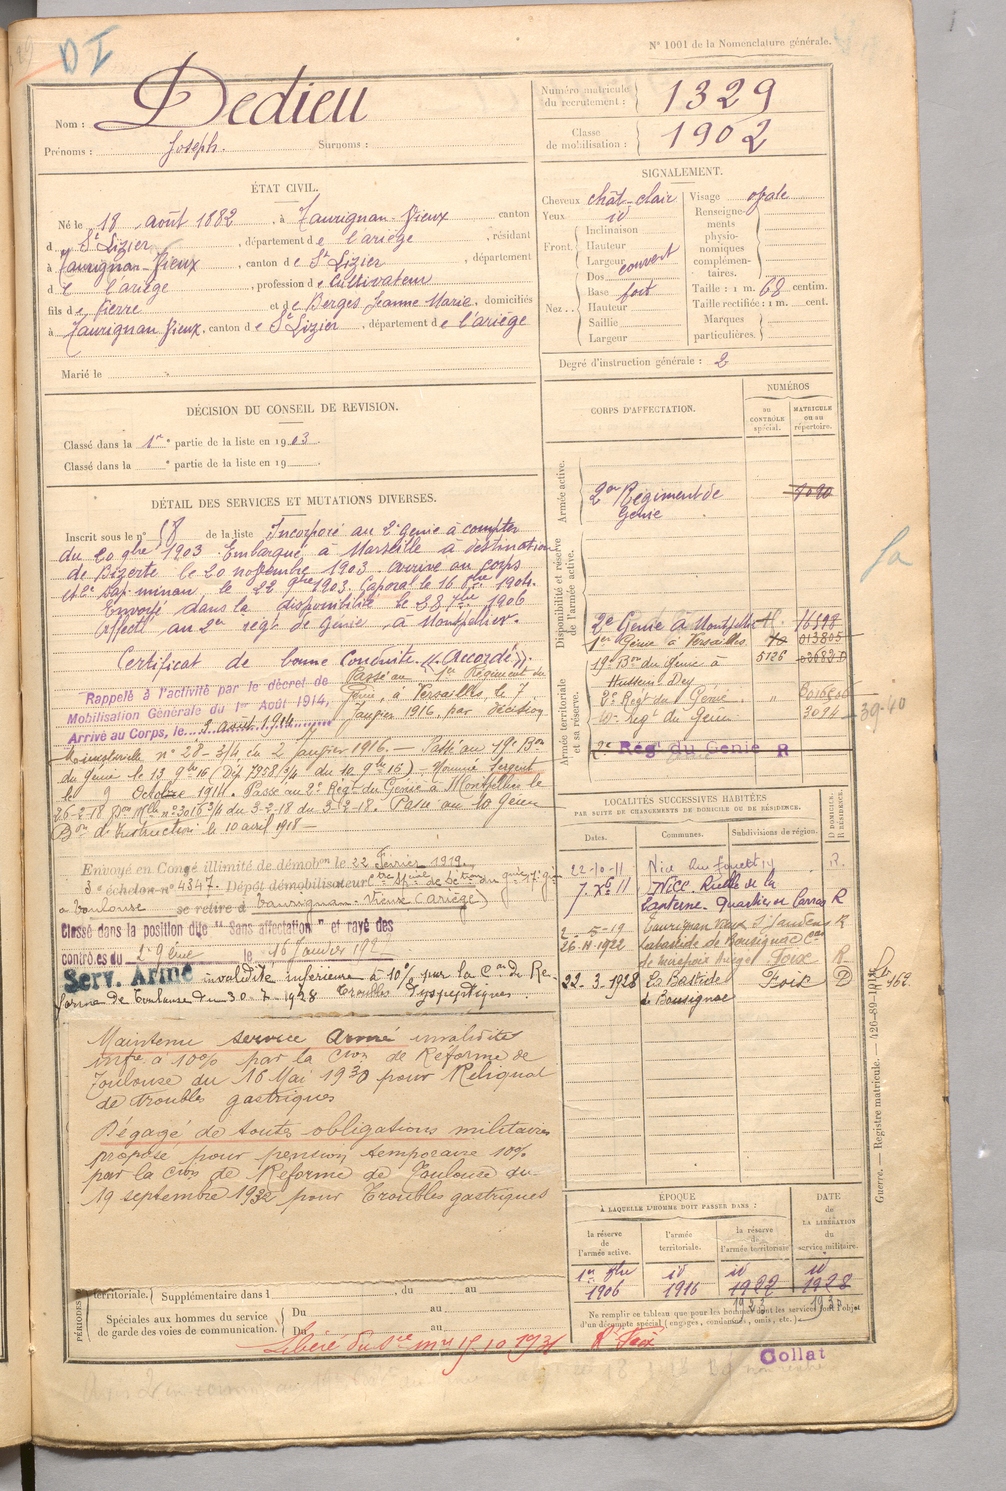 D I
N° 1001 de la Nomenclature générale.
Nom : Dedieu
Prénoms : Joseph. Surnoms :
Numéro matricule du recrutement : 1329
Classe de mobilisation : 1902
ÉTAT CIVIL.
Né le 18 août 1882, à Taurignan-Vieux canton
d St Lizier, département de l'ariège, résidant
à Taurignan-Vieux, canton de St Lizier, département
de l'ariège, profession de Cultivateur
fils de Pierre et de Berges Jeanne Marie, domiciliés
à Taurignan Vieux, canton de St Lizier, département de l'ariège
Marié le
SIGNALEMENT.
Cheveux chât-clair
Yeux id
Front. Inclinaison
Hauteur
Largeur couvert
Nez.. Dos
Base fort
Hauteur
Saillie
Largeur
Visage ovale
Renseignements physionomiques complémentaires.
Taille : 1 m. 68 centim.
Taille rectifiée : 1 m. cent.
Marques particulières.
Degré d'instruction générale : 2
DÉCISION DU CONSEIL DE REVISION.
Classé dans la 1re partie de la liste en 1903.
Classé dans la e partie de la liste en 19
DÉTAIL DES SERVICES ET MUTATIONS DIVERSES.
Inscrit sous le n° 58 de la liste Incorporé au 2e Génie à compter
du 20 9bre 1903. Embarqué à Marseille à destination
de Bizerte le 20 novembre 1903. arrivé au corps
et 2e sap-mineur, le 22 9bre 1903. Caporal le 16 1904.
Envoyé dans la disponibilité le 28 7bre 1906
Affecté au 2e régt de Génie, à Montpellier.
Certificat de bonne Conduite "Accordé".
Rappelé à l'activité par le décret de
Mobilisation Générale du 1er Août 1914,
Arrivé au Corps, le 3 août 1914
Passé au 1er Régiment du
Génie, à Versailles, le 7
Janvier 1916, par décision
ministérielle n° 28-3/4 du 2 janvier 1916. - Passé au 19e Bon
du Génie le 13 9bre 16 (Dép 7958 3/4 du 10 9bre 16) Nommé Sergent
le 9 Octobre 1914. Passé au 2e Régt du Génie à Montpellier le
26-2-18 Don Mlle n° 3016 3/4 du 3-2-18 du 3-2-18. Passé au 10 Génie
Bon de Instruction le 10 avril 1918
Envoyé en Congé illimité de démobon le 22 Février 1919.
3e échelon n° 4347. Dépôt démobilisateur
à Toulouse se retire à Taurignan-Vieux (Ariège)
Classé dans la position dite "Sans affectation" et rayé des
contrôles du 2e Génie le 16 Janvier 192
Serv. Armé invalidité inférieure à 10% par la Con de Ré-
forme de Toulouse du 30-7-1928 Troubles dyspeptiques.
Maintenu service Armé invalidité
infre à 10% par la Cion de Réforme de
Toulouse du 16 Mai 1930 pour Reliquat
de troubles gastriques
Dégagé de toutes obligations militaires
proposé pour pension temporaire 10%
par la Cion de Réforme de Toulouse du
19 septembre 1932 pour Troubles gastriques
CORPS D'AFFECTATION.
NUMÉROS
au CONTRÔLE spécial.
MATRICULE ou au répertoire.
Armée active.
2me Régiment de Génie
Disponibilité et réserve de l'armée active.
2e Génie à Montpellier 16398
1er Génie à Versailles 013805
19e Bon du Génie à Hussein Dey 5126
Armée territoriale et sa réserve.
2e Régt du Génie "
10e Régt du Génie 3094 39-40
2e Reg du Genie R
LOCALITÉS SUCCESSIVES HABITÉES
PAR SUITE DE CHANGEMENTS DE DOMICILE OU DE RÉSIDENCE.
Dates. Communes. Subdivisions de région. D DOMICILE. R RÉSIDENCE.
22-10-11 Nice R.
7. Xbre 11 Nice. Ruelle de la Lanterne. Quartier de Carras R
2-5-19 Taurignan Vieux St Gaudens R
26-11-1922 Labastide de Bousignac Con de mirepoix Ariège Foix R
22-3-1928 La Bastide de Bousignac Foix D
Guerre. — Registre matricule. — 426-89-1912.
ÉPOQUE
À LAQUELLE L'HOMME DOIT PASSER DANS :
la réserve de l'armée active. l'armée territoriale. la réserve de l'armée territoriale
DATE de LA LIBÉRATION du service militaire.
1er 9bre 1906 id 1916 id 1922 id 1928
1923
Ne remplir ce tableau que pour les hommes dont les services font l'objet
d'un décompte spécial (engagés, commissionnés, omis, etc.)
PÉRIODES
territoriale. Supplémentaire dans l , du au
Spéciales aux hommes du service
de garde des voies de communication.
Du au
Du au
Libéré du Sce mre 15.10.1931 Rt Foix
Collat